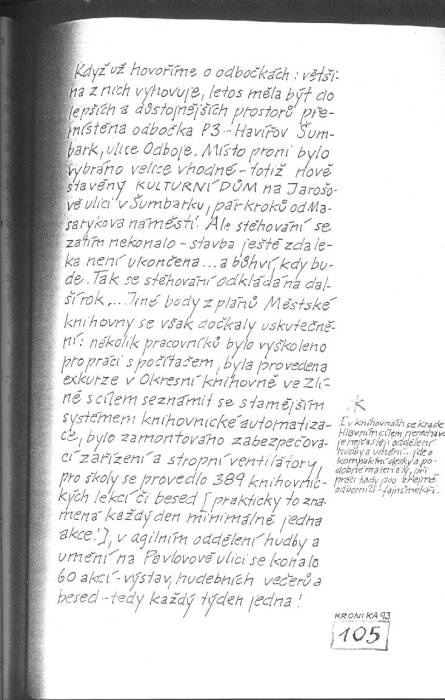 Když už hovoříme o odbočkách: větši-
na z nich vyhovuje, letos měla být do
lepších a důstojnějších prostorů pře-
místěna odbočka P3-Havířov Šum-
bark, ulice Odboje. Místo pro ni bylo
vybráno velice vhodné-totiž nově
stavěný KULTURNÍ DŮM na Jarošo-
vě ulici v Šumbarku, pár kroků od Ma-
sarykova náměstí. Ale stěhování se
zatím nekonalo-stavba ještě zdale-
ka není ukončena...a bůhví, kdy bu-
de. Tak se stěhování odkládá na dal-
ší rok... Jiné body z plánů Městské
knihovny se však dočkaly uskutečně-
ní: několik pracovníků bylo vyškoleno
pro práci s počítačem, byla provedena
exkurze v Okresní knihovně ve Zlí-
ně s cílem seznámit se s tamějším
systémem knihovnické automatiza-
ce, bylo zamontováno zabezpečova-
cí zařízení a stropní ventilátory,
pro školy se provedlo 389 knihovnic-
kých lekcí či besed [prakticky to zna-
mená každý den minimálně jedna
akce!], v agilním oddělení hudby a
umění na Pavlovově ulici se konalo
60 akcí-výstav, hudebních večerů a
besed-tedy každý týden jedna!
*
I v knihovnách se krade
Hlavním cílem nenechavc
je nejčastěji oddělení
hudby a umění... jde o
kompaktní desky a po-
dobné materiály, při
práci tady jsou zřejmě
odborníci-fajnšmekři.
KRONIKA 93
105